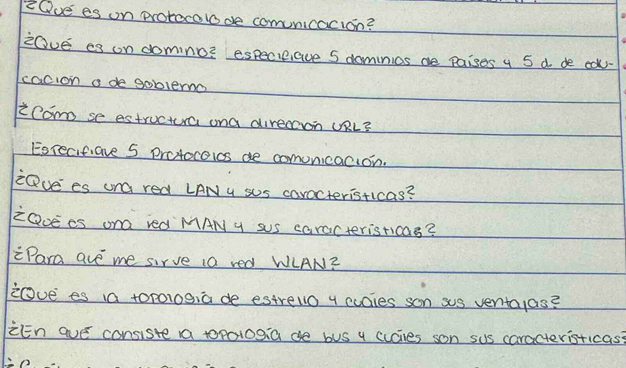 ¿Qué es un protocolo de comunicación?
¿Qué es un domino? especifique 5 dominios de Países y 5 d. de edu-
cación o de gobierno
¿Cómo se estructura una dirección URL?
Especifique 5 Protocolos de comunicación.
¿Qué es una red LAN y sus características?
¿Qué es una red MAN y sus características?
¿Para qué me sirve la red WLAN?
¿Qué es la topología de estrella y cuales son sus ventajas?
¿En qué consiste la topología de bus y cuales son sus características?